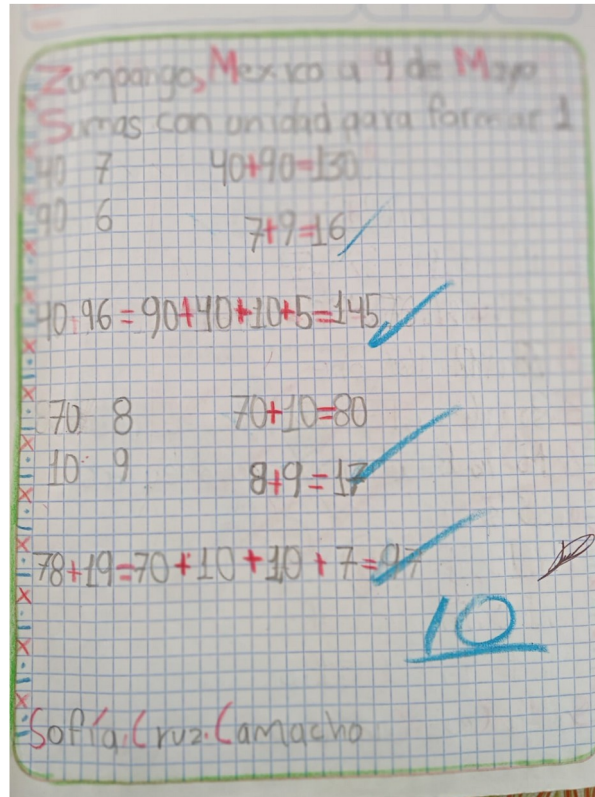 Zumpango, Mexico a 9 de Mayo
Sumas con unidad para formar 1
40 7 40+90=130
90 6 7+9=16
40 96 = 90+40+10+5=145
70 8 70+10=80
10 9 8+9=17
78+19=70+10+10+7=97
10
Sofía.Cruz.Camacho